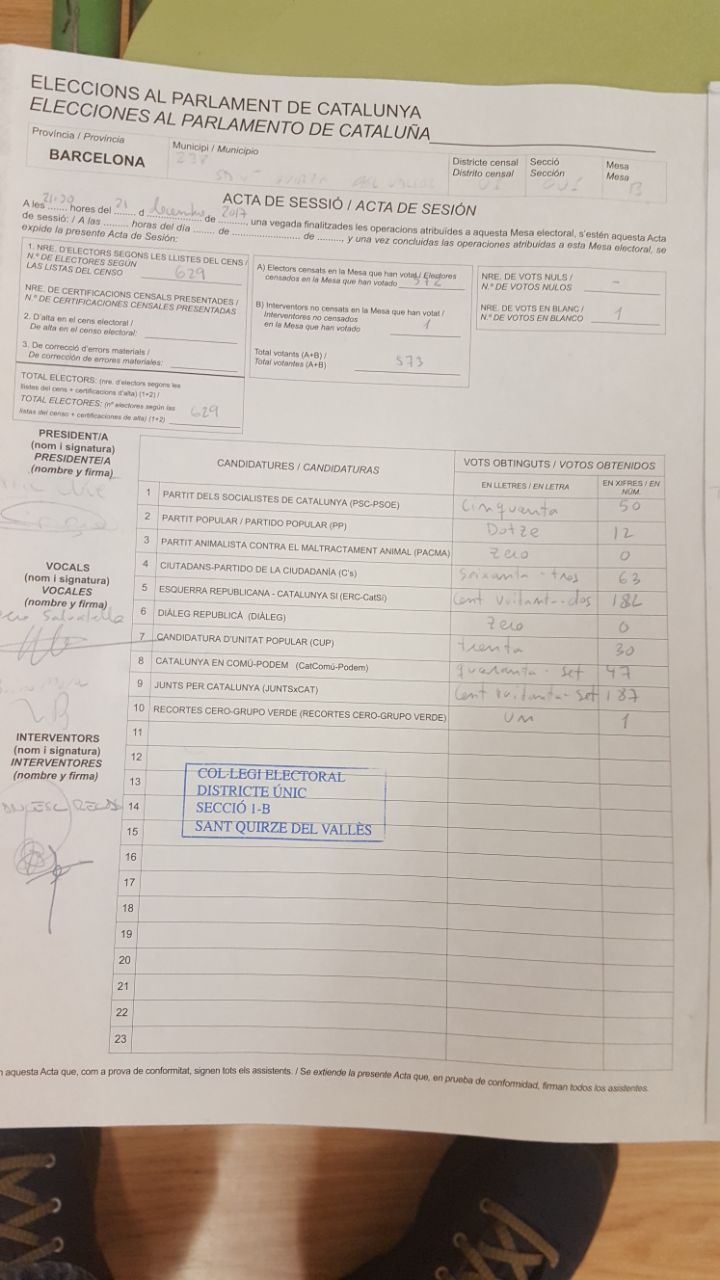 ELECCIONS AL PARLAMENT DE CATALUNYA
ELECCIONES AL PARLAMENTO DE CATALUÑA
Província / Provincia
BARCELONA
Municipi / Municipio
238
Districte censal
Distrito censal
Secció
Sección
001
Mesa
Mesa
B
ACTA DE SESSIÓ / ACTA DE SESIÓN
A les 21:20 hores del 21 d decembre de 2017, una vegada finalitzades les operacions atribuïdes a aquesta Mesa electoral, s'estén aquesta Acta
de sessió: / A las ........ horas del día ........ de ........................ de ........, y una vez concluidas las operaciones atribuidas a esta Mesa electoral, se
expide la presente Acta de Sesión:
1. NRE. D'ELECTORS SEGONS LES LLISTES DEL CENS /
N.º DE ELECTORES SEGÚN
LAS LISTAS DEL CENSO 629
NRE. DE CERTIFICACIONS CENSALS PRESENTADES /
N.º DE CERTIFICACIONES CENSALES PRESENTADAS
2. D'alta en el cens electoral /
De alta en el censo electoral:
3. De correcció d'errors materials /
De corrección de errores materiales:
TOTAL ELECTORS: (nre. d'electors segons les
llistes del cens + certificacions d'alta) (1+2) /
TOTAL ELECTORES: (nº electores según las
listas del censo + certificaciones de alta) (1+2) 629
A) Electors censats en la Mesa que han votat / Electores
censados en la Mesa que han votado 572
B) Interventors no censats en la Mesa que han votat /
Interventores no censados
en la Mesa que han votado 1
Total votants (A+B) /
Total votantes (A+B) 573
NRE. DE VOTS NULS /
N.º DE VOTOS NULOS -
NRE. DE VOTS EN BLANC /
N.º DE VOTOS EN BLANCO 1
PRESIDENT/A
(nom i signatura)
PRESIDENTE/A
(nombre y firma)
VOCALS
(nom i signatura)
VOCALES
(nombre y firma)
INTERVENTORS
(nom i signatura)
INTERVENTORES
(nombre y firma)
CANDIDATURES / CANDIDATURAS
VOTS OBTINGUTS / VOTOS OBTENIDOS
EN LLETRES / EN LETRA
EN XIFRES / EN NÚM.
1 PARTIT DELS SOCIALISTES DE CATALUNYA (PSC-PSOE) Cinquanta 50
2 PARTIT POPULAR / PARTIDO POPULAR (PP) Dotze 12
3 PARTIT ANIMALISTA CONTRA EL MALTRACTAMENT ANIMAL (PACMA) Zero 0
4 CIUTADANS-PARTIDO DE LA CIUDADANÍA (C's) Seixanta-tres 63
5 ESQUERRA REPUBLICANA - CATALUNYA SI (ERC-CatSí) Cent vuitanta-dos 182
6 DIÀLEG REPUBLICÀ (DIÀLEG) Zero 0
7 CANDIDATURA D'UNITAT POPULAR (CUP) trenta 30
8 CATALUNYA EN COMÚ-PODEM (CatComú-Podem) quaranta-set 47
9 JUNTS PER CATALUNYA (JUNTSxCAT) Cent vuitanta-set 187
10 RECORTES CERO-GRUPO VERDE (RECORTES CERO-GRUPO VERDE) UN 1
11
12
13
14
15
16
17
18
19
20
21
22
23
COL·LEGI ELECTORAL
DISTRICTE ÚNIC
SECCIÓ 1-B
SANT QUIRZE DEL VALLÈS
aquesta Acta que, com a prova de conformitat, signen tots els assistents. / Se extiende la presente Acta que, en prueba de conformidad, firman todos los asistentes.